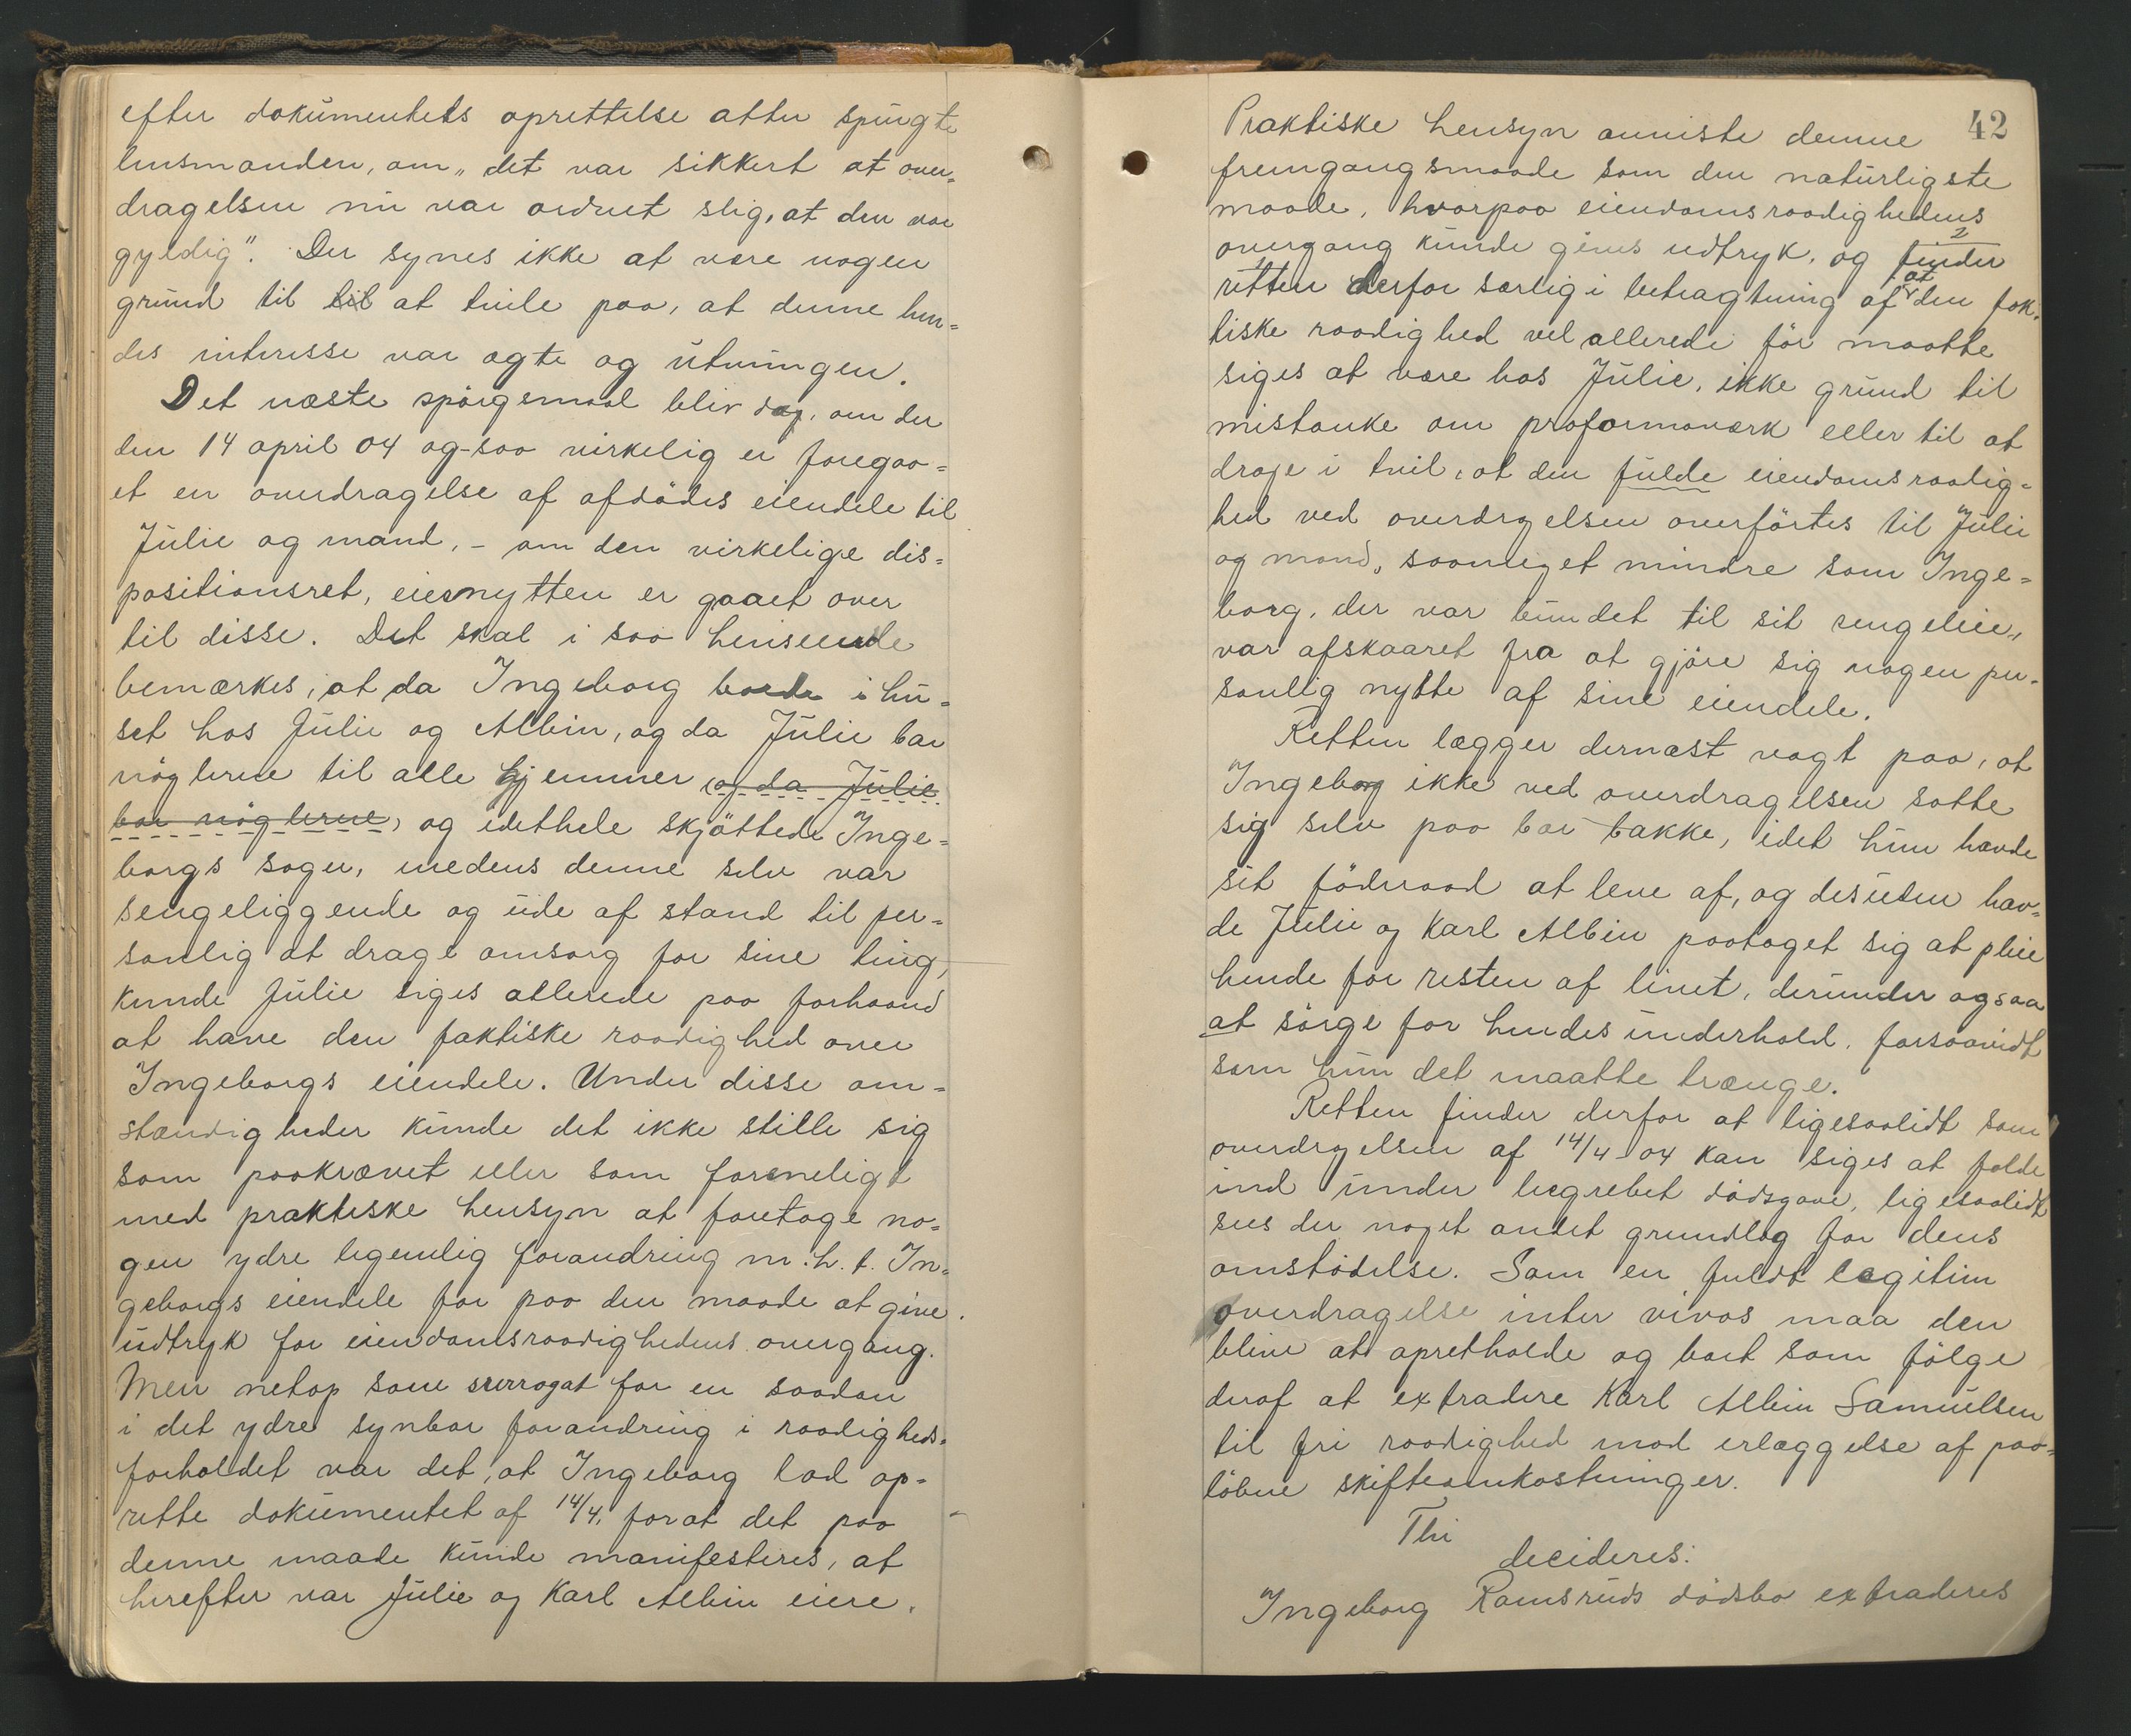 efter dokumentets oprettelse atter spurgte
lensmanden, om „det var sikkert at over=
dragelsen nu var ordnet slig, at den var
gyldig". Der synes ikke at være nogen
grund til til at tvile paa, at denne hen=
des interesse var ægte og utvungen.
Det næste spörgsmaal blir dog, om der
den 14 april 04 og-saa virkelig er foregaa=
et en overdragelse af afdödes eiendele til
Julie og mand, - om den virkelige dis=
positionsret, eiernytten er gaaet over
til disse. Det skal i saa henseende
bemærkes, at da Ingeborg boede i hu=
set hos Julie og Albin, og da Julie bar
nöglerne til alle gjemmer og da Julie
bar nöglerne, og idethele skjöttede Inge=
borgs sager, medens denne selv var
sengeliggende og ude af stand til per=
sonlig at drage omsorg for sine ting,
kunde Julie siges allerede paa forhaand
at have den faktiske raadighed over
Ingeborgs eiendele. Under disse om=
stændigheder kunde det ikke stille sig
som paakrævet eller som foreneligt
med praktiske hensyn at foretage no=
gen ydre legemlig forandring m.h.t. In=
geborgs eiendele for paa den maade at give
udtryk for eiendomsraadighedens overgang.
Men netop som surrogat for en saadan
i det ydre synbar forandring i raadigheds=
forholdet var det, at Ingeborg lod op=
rette dokumentet af 14/4, forat det paa
denne maade kunde manifesteres, at
herefter var Julie og Karl Albin eiere.
42
Praktiske hensyn anviste denne
fremgangsmaade som den naturligste
maade, hvorpaa eiendomsraadighedens
overgang kunde gives udtryk, og finder
2
retten derfor særlig i betragtning af at den fak=
tiske raadighed vel allerede för maatte
siges at være hos Julie, ikke grund til
mistanke om proformaværk eller til at
drage i tvil, at den fulde eiendomsraadig=
hed ved overdragelsen overförtes til Julie
og mand, saameget mindre som Inge=
borg, der var bundet til sit sengeleie,
var afskaaret fra at gjöre sig nogen per=
sonlig nytte af sine eiendele.
Retten lægger dernæst vægt paa, at
Ingeborg ikke ved overdragelsen satte
sig selv paa bar bakke, idet hun havde
sit föderaad at leve af, og desuten hav=
de Julie og Karl Albin paataget sig at pleie
hende for resten af livet, derunder ogsaa
at sörge for hendes underhold, forsaavidt
som hun det maatte trænge.
Retten finder derfor at ligesaalidt som
overdragelsen af 14/4-04 kan siges at falde
ind under begrebet dödsgave, ligesaalidt
sees der noget andet grundlag for dens
omstödelse. Som en fuldt legitim
overdragelse inter vivos maa den
blive at opretholde og boet som fölge
deraf at extradere Karl Albin Samuelsen
til fri raadighed mod erlæggelse af paa=
löbne skifteomkostninger.
Thi
decideres:
Ingeborg Ramsruds dödsbo extraderes